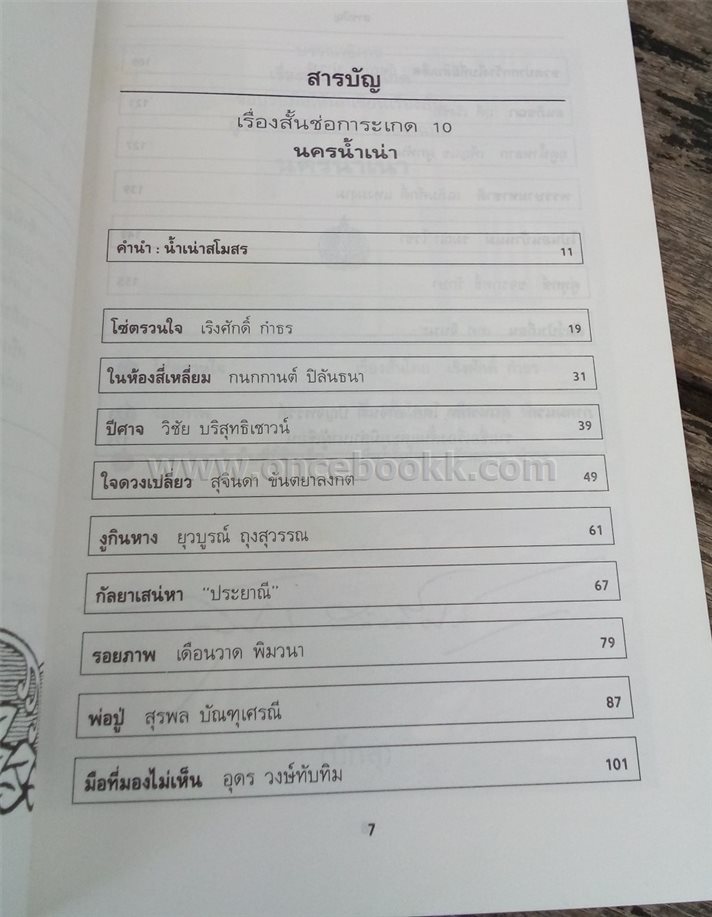 สารบัญ
เรื่องสั้นช่อการะเกด 10
นครน้ำเน่า
คำนำ : น้ำเน่าสโมสร 11
โซ่ตรวนใจ เริงศักดิ์ กำธร 19
ในห้องสี่เหลี่ยม กนกกานต์ ปิลันธนา 31
ปีศาจ วิชัย บริสุทธิเชาวน์ 39
www.oncebookk.com
ใจดวงเปลี่ยว สุจินดา ขันตยาลงกต 49
งูกินหาง ยุวบูรณ์ ถุงสุวรรณ 61
กัลยาเสน่หา "ประยาณี" 67
รอยภาพ เดือนวาด พิมวนา 79
พ่อปู่ สุรพล บัณฑุเศรณี 87
มือที่มองไม่เห็น อุดร วงษ์ทับทิม 101
7